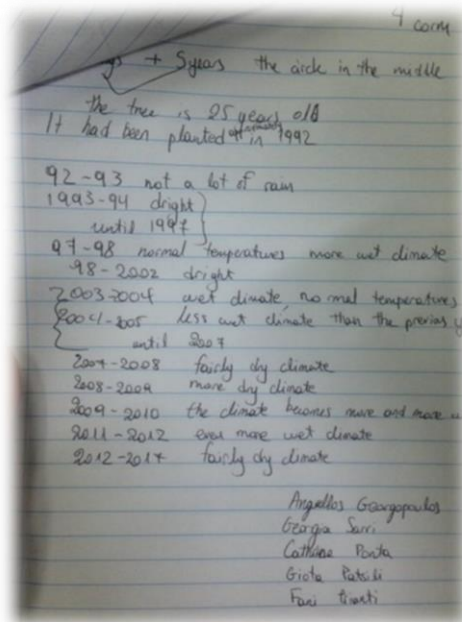 4 corm
+ 5 years the circle in the middle
the tree is 25 years old
It had been planted in 1992
92-93 not a lot of rain
1993-94 dright
until 1997
97-98 normal temperatures more wet climate
98-2002 dright
2003-2004 wet climate, normal temperatures
2004-2005 less wet climate than the previus
until 2007
2007-2008 fairly dry climate
2008-2009 more dry climate
2009-2010 the climate becomes more and more
2011-2012 even more wet climate
2012-2017 fairly dry climate
Georgopoulos
Georgia Sarri
Giota
Fani